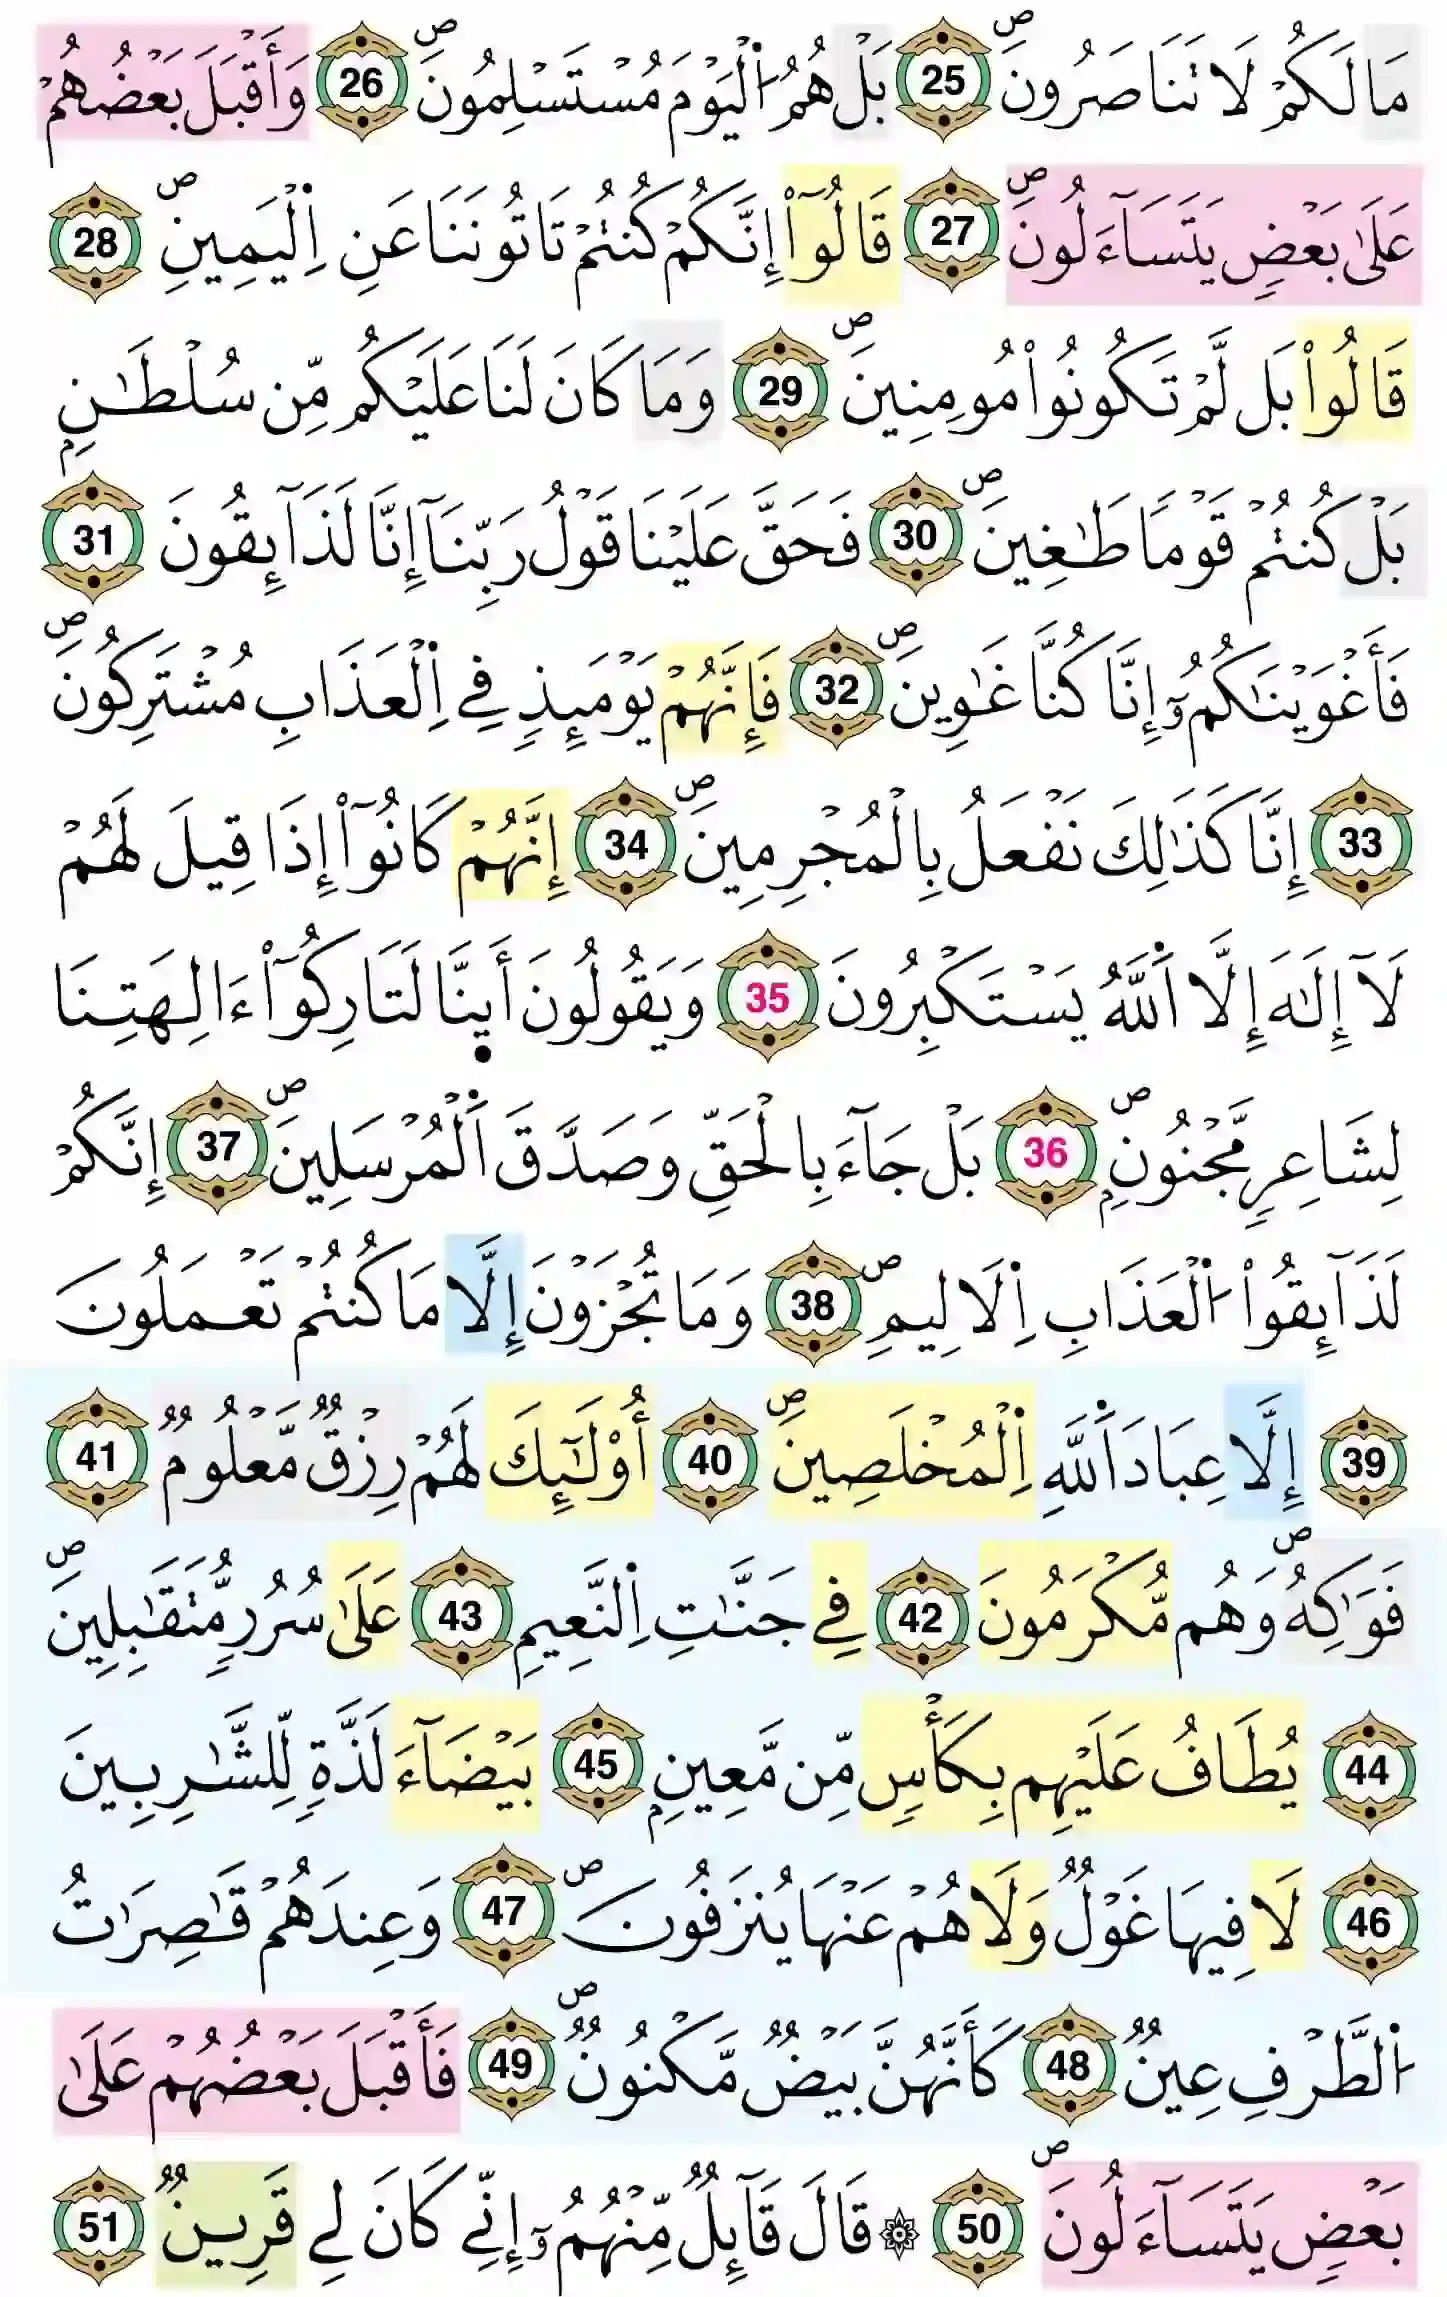 مَا لَكُمْ لَا تَنَاصَرُونَۖ 25 بَلْ هُمُ اُ۬لْيَوْمَ مُسْتَسْلِمُونَۖ 26 وَأَقْبَلَ بَعْضُهُمْ
عَلَىٰ بَعْضٖ يَتَسَآءَلُونَۖ 27 قَالُوٓاْ إِنَّكُمْ كُنتُمْ تَاتُونَنَا عَنِ اِ۬لْيَمِينِۖ 28
قَالُواْ بَل لَّمْ تَكُونُواْ مُومِنِينَۖ 29 وَمَا كَانَ لَنَا عَلَيْكُم مِّن سُلْطَٰنِۢ
بَلْ كُنتُمْ قَوْماٗ طَٰغِينَۖ 30 فَحَقَّ عَلَيْنَا قَوْلُ رَبِّنَآ إِنَّا لَذَآئِقُونَ 31
فَأَغْوَيْنَٰكُمُۥٓ إِنَّا كُنَّا غَٰوِينَۖ 32 فَإِنَّهُمْ يَوْمَئِذٖ فِے اِ۬لْعَذَابِ مُشْتَرِكُونَۖ
33 إِنَّا كَذَٰلِكَ نَفْعَلُ بِالْمُجْرِمِينَۖ 34 إِنَّهُمْ كَانُوٓاْ إِذَا قِيلَ لَهُمْ
لَآ إِلَٰهَ إِلَّا اَ۬للَّهُ يَسْتَكْبِرُونَ 35 وَيَقُولُونَ أَي۪نَّا لَتَارِكُوٓاْ ءَالِهَتِنَا
لِشَاعِرٖ مَّجْنُونِۢۖ 36 بَلْ جَآءَ بِالْحَقِّ وَصَدَّقَ اَ۬لْمُرْسَلِينَۖ 37 إِنَّكُمْ
لَذَآئِقُواْ اُ۬لْعَذَابِ اِ۬لَالِيمِۖ 38 وَمَا تُجْزَوْنَ إِلَّا مَا كُنتُمْ تَعْمَلُونَ
39 إِلَّا عِبَادَ اَ۬للَّهِ اِ۬لْمُخْلَصِينَۖ 40 أُوْلَٰٓئِكَ لَهُمْ رِزْقٞ مَّعْلُومٞ 41
فَوَٰكِهُۖ وَهُم مُّكْرَمُونَ 42 فِے جَنَّٰتِ اِ۬لنَّعِيمِ 43 عَلَىٰ سُرُرٖ مُّتَقَٰبِلِينَۖ
44 يُطَافُ عَلَيْهِم بِكَأْسٖ مِّن مَّعِينِۢ 45 بَيْضَآءَ لَذَّةٖ لِّلشَّٰرِبِينَ
46 لَا فِيهَا غَوْلٞ وَلَا هُمْ عَنْهَا يُنزَفُونَۖ 47 وَعِندَهُمْ قَٰصِرَٰتُ
اُ۬لطَّرْفِ عِينٞ 48 كَأَنَّهُنَّ بَيْضٞ مَّكْنُونٞۖ 49 فَأَقْبَلَ بَعْضُهُمْ عَلَىٰ
بَعْضٖ يَتَسَآءَلُونَۖ 50 ۞ قَالَ قَآئِلٞ مِّنْهُمُۥٓ إِنِّے كَانَ لِے قَرِينٞ 51